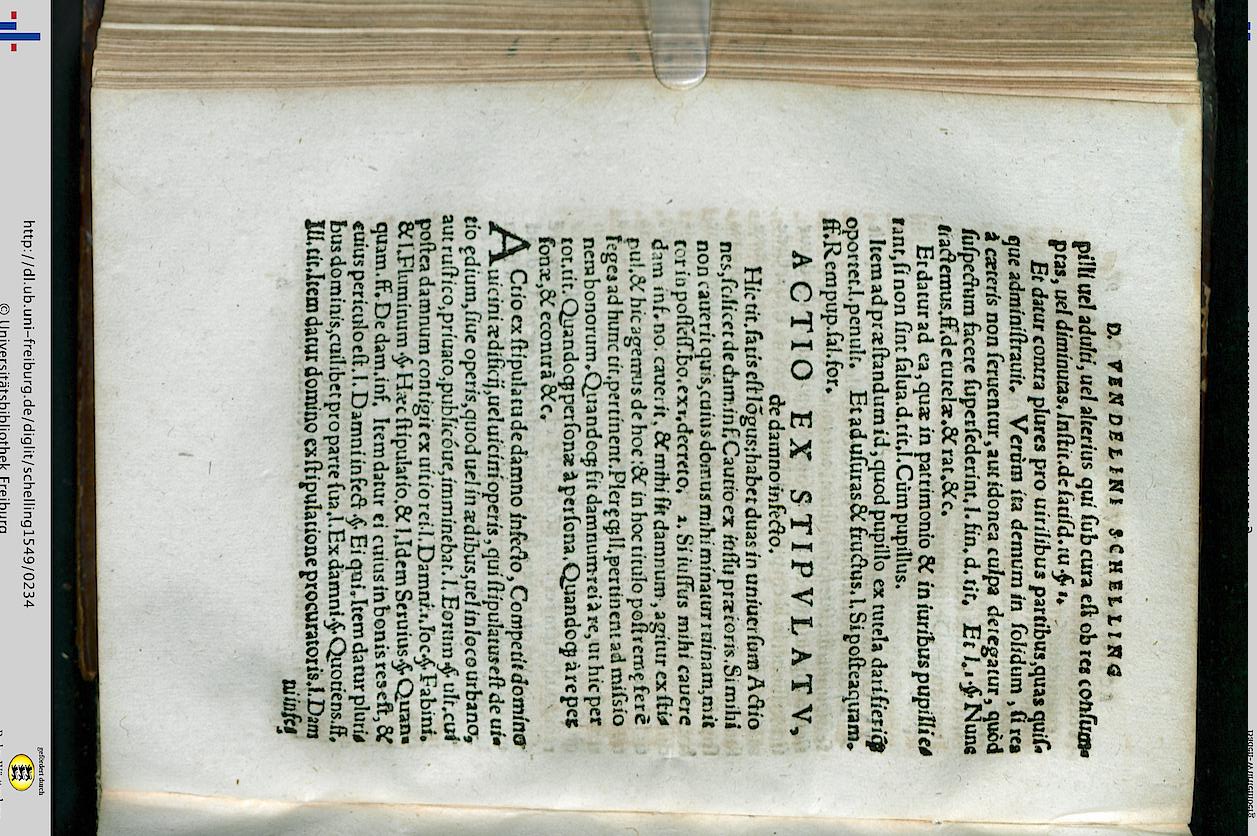 D. VENDELINI SCHELLING
pilli uel adulti, uel alterius qui sub cura est ob res consum
ptas, uel diminutas. Instit. de satisd. tu. §. 1.
Et datur contra plures pro uirilibus partibus, quas quis
que administrauit. Verùm ita demum in solidum, si res
à cæteris non seruentur, aut idonea culpa detegatur, quòd
suspectum facere supersederint, l. fin. d. tit. Et l. 1. §. Nunc
tractemus, ff. de tutelæ. & rat. &c.
Et datur ad ea, quæ in patrimonio & in iuribus pupilli es
rant, si non sint salua. d. tit. l. Cum pupillus.
Item ad præstandum id, quod pupillo ex tutela dari fieriq́;
oportet. l. penult. Et ad usuras & fructus. l. Si posteaquam.
ff. Rem pup. sal. for.
ACTIO EX STIPVLATV,
de damno infecto.
Hic tit. satis est lõgus: habet duas in uniuersum Actio
nes, scilicet de dam. inf. Cautio ex iussu prætoris. Si mihi
non cauerit quis, cuius domus mihi minatur ruinam, mit
tor in possess. bo. ex 1. decreto, 2. Si iussus mihi cauere
dam inf. no. cauerit, & mihi fit damnum, agitur ex sti
pul. & hic agemus de hoc & in hoc titulo postremę ferè
leges ad hunc tit. pertinent. Pleręq; ll. pertinent ad missio
nem bonorum. Quandoq; fit damnum rei à re, ut hic per
tot. tit. Quandoq; personæ à persona. Quandoq; à re per
sonæ, & econtrà &c.
ACtio ex stipulatu de damno infecto, Competit domino
uicini ædificij, uel uicini operis, qui stipulatus est de uis
tio ędium, siue operis, quod uel in ædibus, uel in loco urbano,
aut rustico, priuato, publicóue, imminebat. l. Eorum §. ult. cui
postea damnum contigit ex uitio rei. l. Damni. 1. loc. §. Sabini.
& l. Fluminum §. Hæc stipulatio. & l. Idem Seruius §. Quans
quam. ff. De dam. inf. Item datur ei cuius in bonis res est, &
cuius periculo est. l. Damni infect. §. Ei qui. Item datur pluris
bus dominis, cuilibet pro parte sua. l. Ex damni §. Quotiens. ff.
Ill. tit. Item datur domino ex stipulatione procuratoris. l. Dam
ni infes
http://dl.ub.uni-freiburg.de/diglit/schelling1549/0234
© Universitätsbibliothek Freiburg
gefördert durch